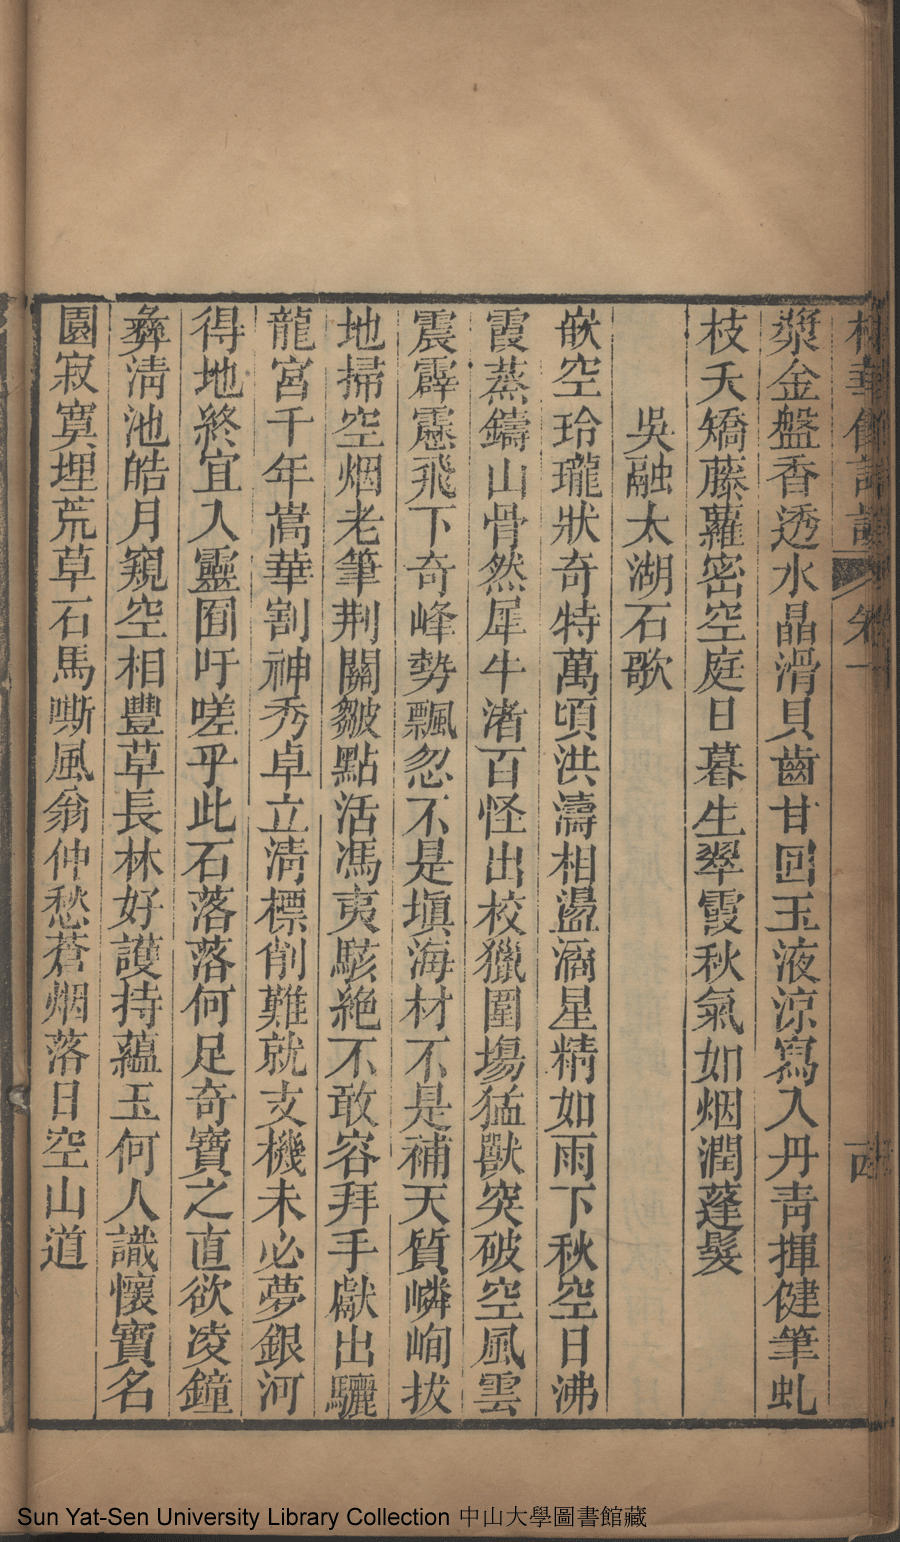 漿金盤香透水晶滑貝齒甘回玉液涼寫入丹青揮健筆虬
枝夭矯藤蘿密空庭日暮生翠霞秋氣如烟潤蓬髮
吳融太湖石歌
嵌空玲瓏狀奇特萬頃洪濤相盪滴星精如雨下秋空日沸
霞蒸鑄山骨然犀牛渚百怪出校獵圍場猛獸突破空風雲
震霹靂飛下奇峰勢飄忽不是塡海材不是補天質嶙峋拔
地掃空烟老筆荆關皴點活馮夷駭絶不敢容拜手獻出驪
龍宮千年嵩華割神秀卓立淸標削難就支機未必夢銀河
得地終宜入靈囿吁嗟乎此石落落何足奇寶之直欲凌鐘
彝淸池皓月窺空相豐草長林好護持蘊玉何人識懷寶名
園寂寞埋荒草石馬嘶風翁仲愁蒼烟落日空山道
卷一
Sun Yat-Sen University Library Collection 中山大學圖書館藏